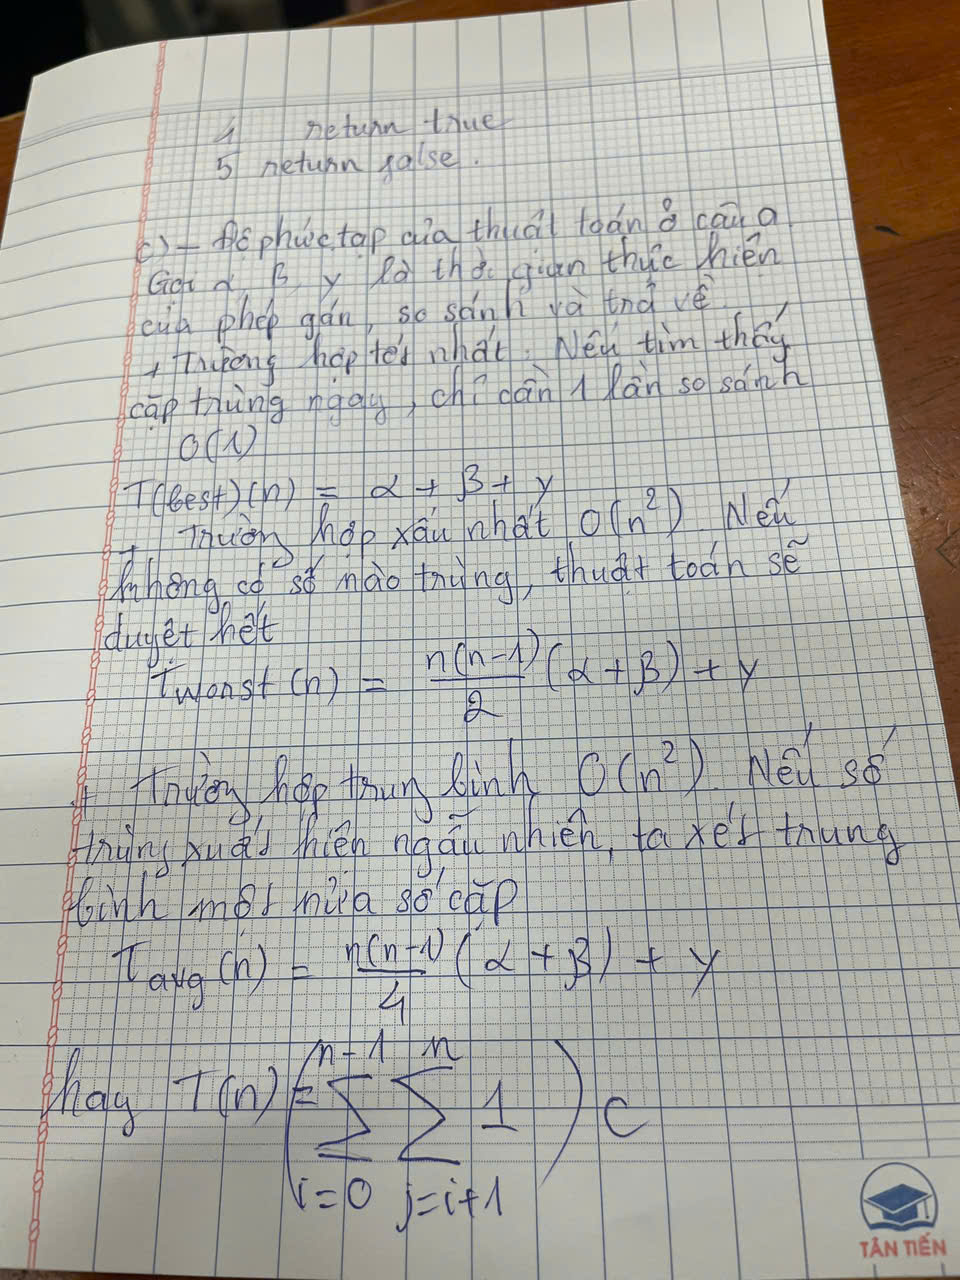 4 return true
5 return false.
c) - Độ phức tạp của thuật toán ở câu a
Gọi α, β, γ là thời gian thực hiện
của phép gán, so sánh và trả về.
+ Trường hợp tốt nhất: Nếu tìm thấy
cặp trùng ngay, chỉ cần 1 lần so sánh
O(1)
T(best)(n) = α + β + γ
+ Trường hợp xấu nhất O(n²). Nếu
không có số nào trùng, thuật toán sẽ
duyệt hết
Tworst(n) = n(n-1)/2 (α+β) + γ
+ Trường hợp trung bình O(n²). Nếu số
trùng xuất hiện ngẫu nhiên, ta xét trung
bình một nửa số cặp
Tavg(n) = n(n-1)/4 (α + β) + γ
hay T(n) = (∑_{i=0}^{n-1} ∑_{j=i+1}^{n} 1) C
TÂN TIẾN